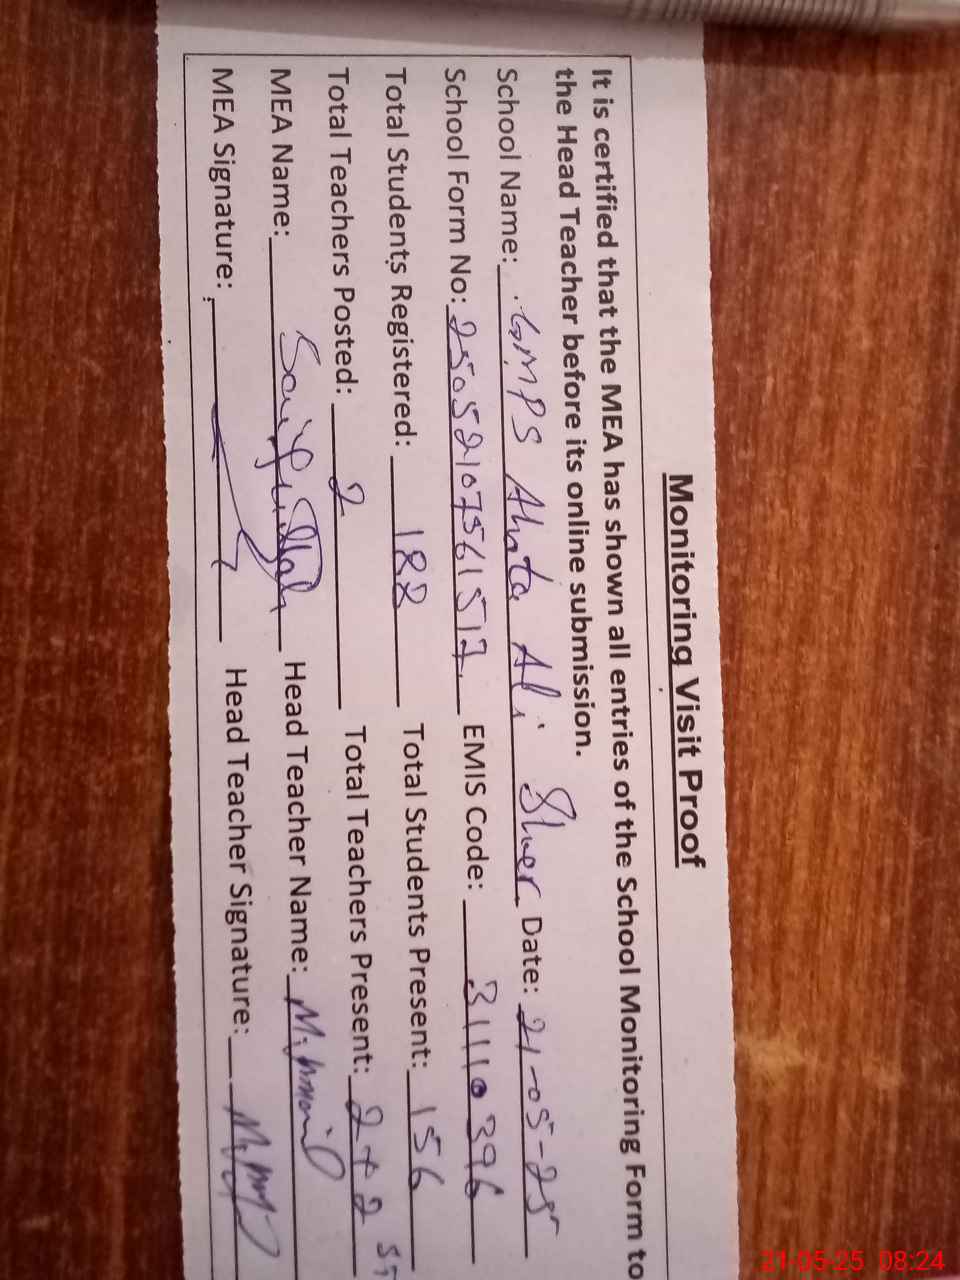 Monitoring Visit Proof
It is certified that the MEA has shown all entries of the School Monitoring Form to
the Head Teacher before its online submission.
School Name: GMPS Ahata Ali Sher Date: 21-05-25
School Form No: 250521075615 EMIS Code: 31110396
Total Students Registered: 188 Total Students Present: 156
Total Teachers Posted: 2 Total Teachers Present: 2+2
MEA Name: Saif ullah Head Teacher Name: M.
MEA Signature: Head Teacher Signature:
21-05-25 08:24